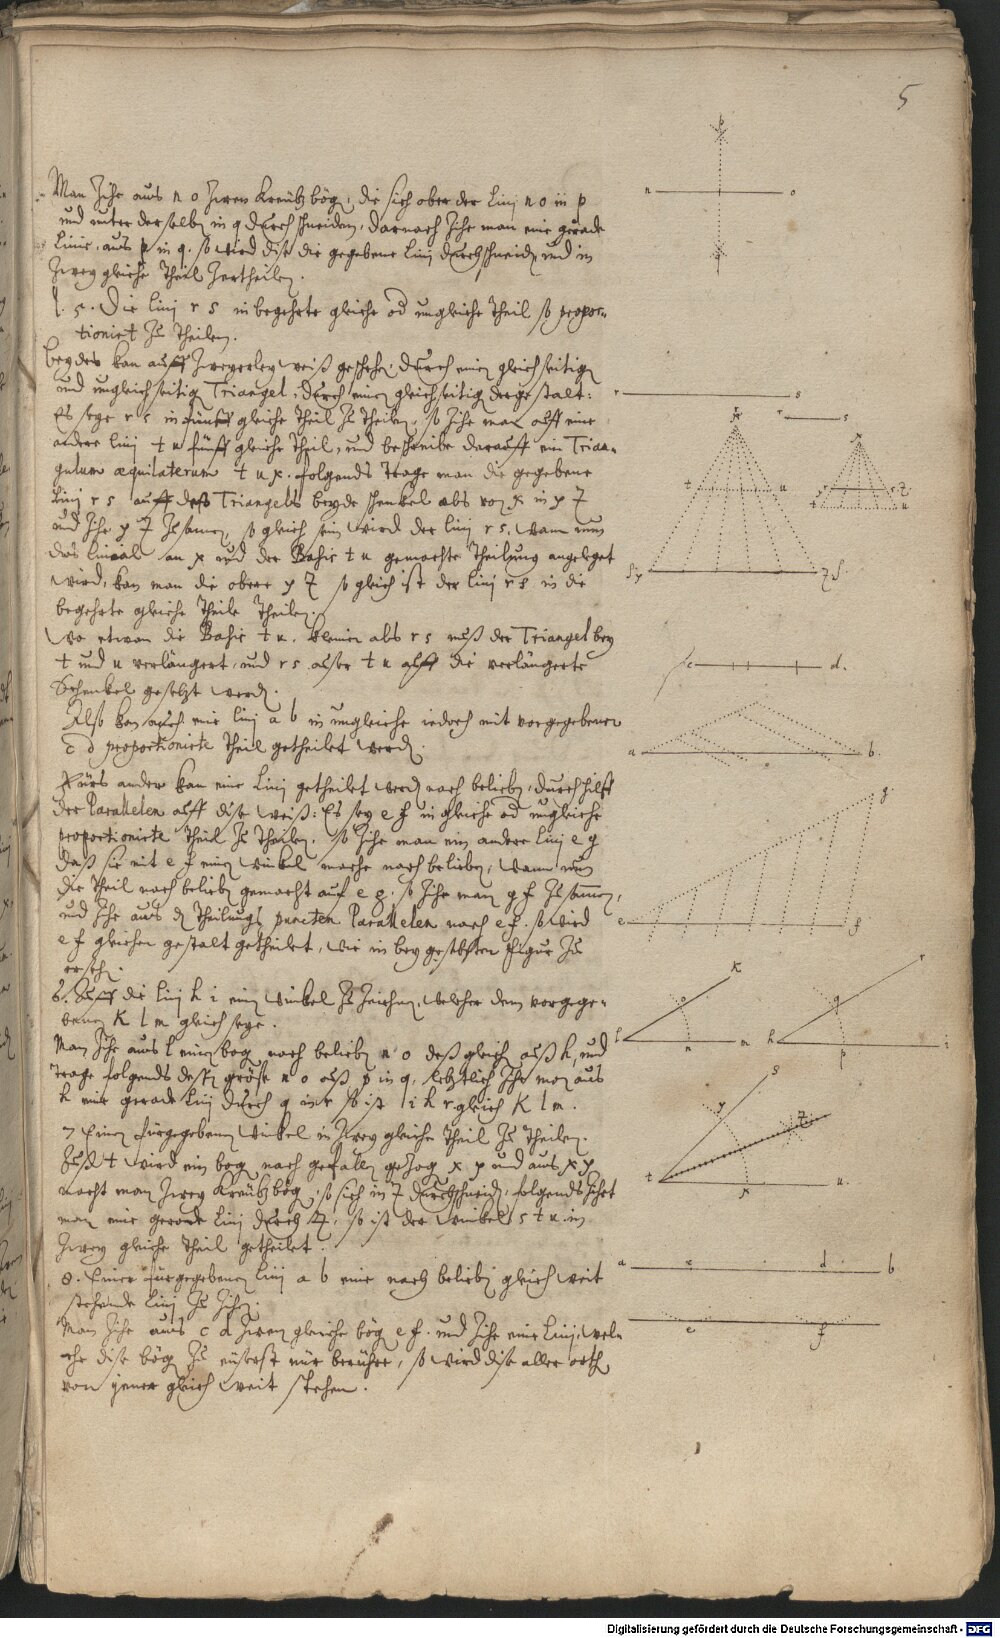 5
Man Zihe aus n o Zween Kreütz bög, die sich ober der Linj n o in p
und unter derselben in q durchschneiden, darnach Zihe man eine gerade
Linie, aus p in q. so wird dise die gegebene Linj durchschneiden und in
Zwey gleiche Theil Zertheilen.
5. Die linj r s in begehrte gleiche od ungleiche Theil so propor-
tioniert Zu Theilen.
beydes kan auff Zweyerley weiß geschehen, durch einen gleichseitigen
und ungleichseitig Triangel, durch einen gleichseitig dergestalt:
Es seye r s in fünff gleiche Theil Zu Theilen, so Zihe man auff eine
andere linj t u fünff gleiche Theil, und beschreibe darauff ein Trian-
gulum æquilaterum t u x. folgends Trage man die gegebene
linj r s auff deß Triangels beyde schenkel als von x in y Z
und Zihe y Z Zusamen, so gleich sein wird der linj r s, wann nun
das linial an x und der Basis t u gemachte Theilung angeleget
wird, kan man die obere y Z so gleich ist der linj r s in die
begehrte gleiche Theile Theilen.
wo etwan die Basis t u. kleiner als r s muß der Triangel bey
t und u verlängert, und r s außer t u auff die verlängerte
Schenkel gesetzt werd.
Also kan auch eine linj a b in ungleiche iedoch mit vorgegebener
c d proportionirte Theil getheilet werd.
Fürs ander kan eine Linj getheilet werd nach belieben, durch hilff
der Parallelen auff dise weiß: Es sey e f in gleiche od ungleiche
proportionirte Theil Zu Theilen. so Zihe man ein andere Linj e g
daß sie mit e f einen winkel mache nach belieben, wann nun
die Theil nach belieben gemacht auf e g. so Zihe man g f Zusamen,
und Zihe aus den Theilungs puncten Parallelen nach e f. so wird
e f gleicher gestalt getheilet, wie in beygesetzten Figur Zu
ersehen.
6. Auff die linj h i ein winkel Zu Zeichnen, welcher dem vorgege-
benen K l m gleich seye.
Man Zihe aus l einen bog nach belieben n o deßgleich auß h, und
trage folgends desen größe n o auß p in q, letztlich Zihe man aus
h eine gerade linj durch q in r so ist i h r gleich K l m.
7 Einen fürgegebenen winkel in Zwey gleiche Theil Zu Theilen.
Auß t wird ein bog nach gefallen gezog x y und aus x y
macht man Zwey Kreützbög, so sich in Z durchschneid, folgends Zihet
man eine gerade linj durch Z, so ist der winkel s t u in
Zwey gleiche Theil getheilet.
8. Einer fürgegebenen linj a b eine nach belieben gleich weit
stehende linj Zu Zihen.
Man Zihe aus c d Zween gleiche bög e f. und Zihe eine linj, wel-
che dise bög Zu eüserst nur berühre, so wird dise aller orth
von jener gleich weit stehen.
p
n o
q
r s
x r s
t u
y Z
c d.
a b.
g
e f
K r
o q
l n m h p i
s
y Z
t x u.
a c d b
e f
Digitalisierung gefördert durch die Deutsche Forschungsgemeinschaft - DFG